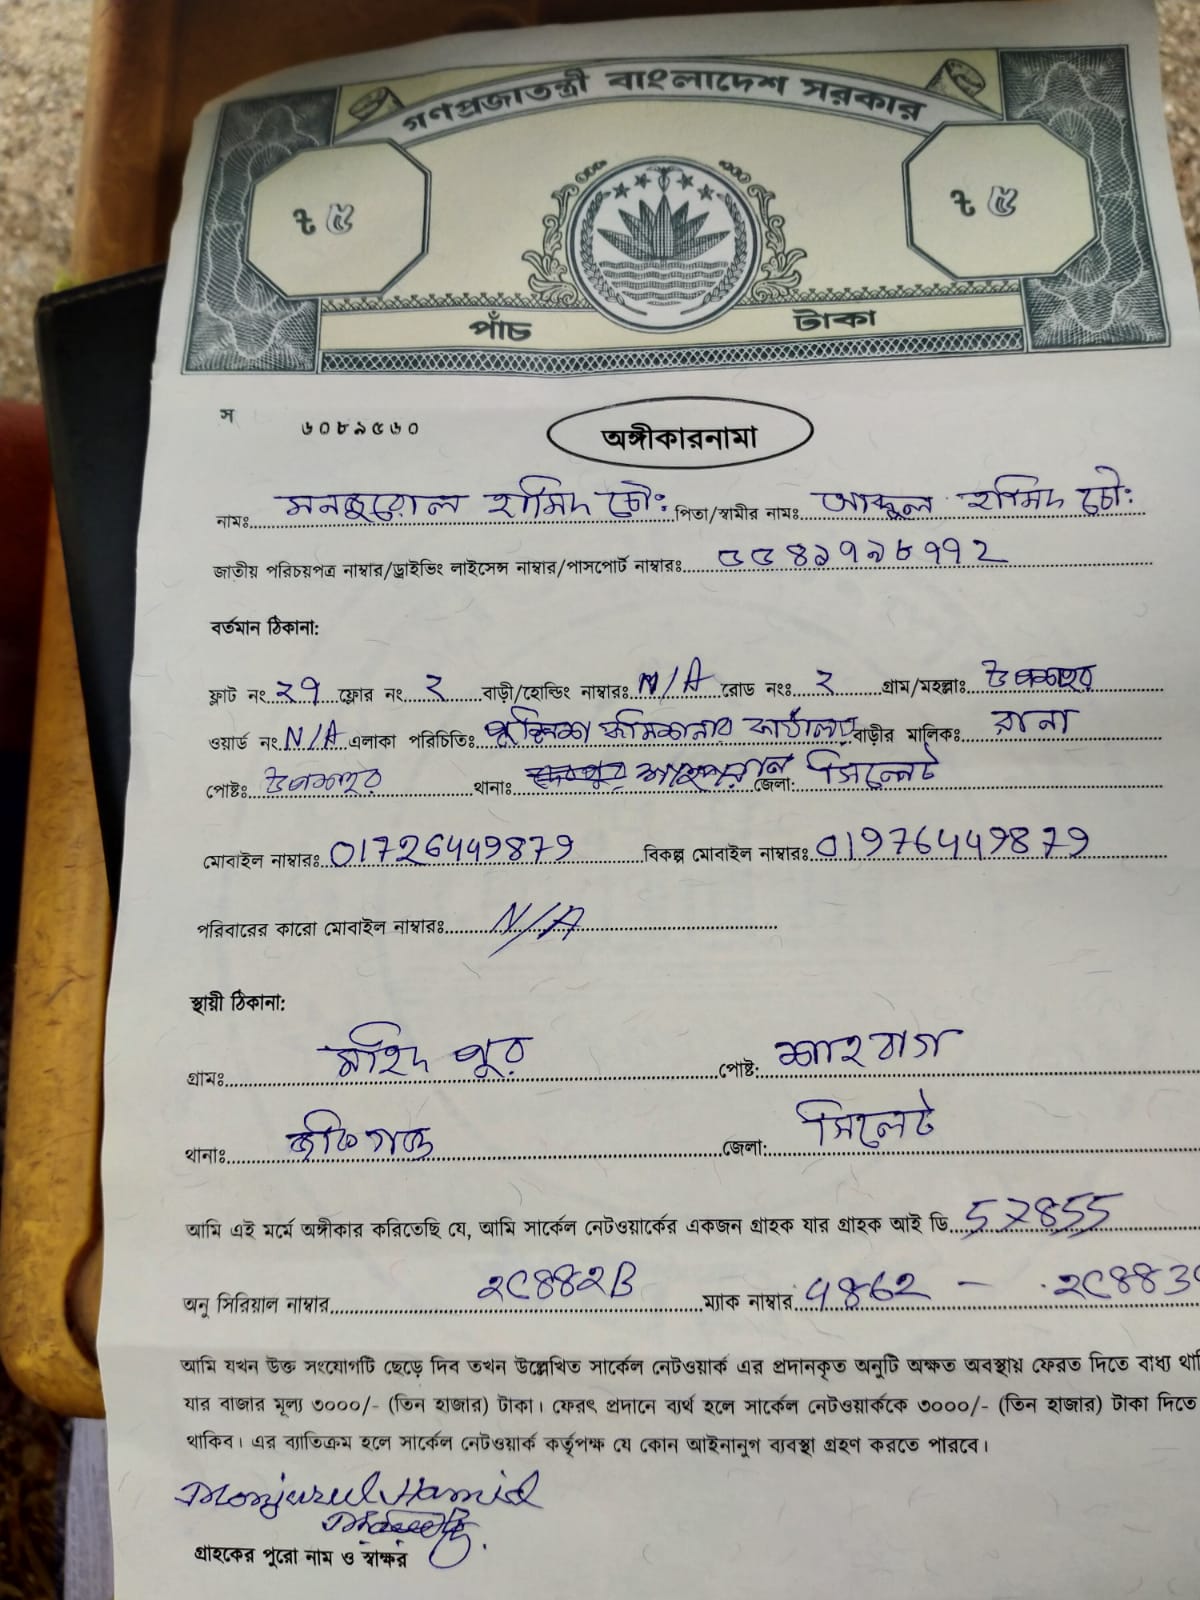 গণপ্রজাতন্ত্রী বাংলাদেশ সরকার
৳ ৫ ৳ ৫
পাঁচ টাকা
স ৬০৮৯৫৬০
অঙ্গীকারনামা
নামঃ মনজুরোল হামিদ চৌঃ পিতা/স্বামীর নামঃ আব্দুল হামিদ চৌঃ
জাতীয় পরিচয়পত্র নাম্বার/ড্রাইভিং লাইসেন্স নাম্বার/পাসপোর্ট নাম্বারঃ ৫৫৪৯৭৯৮৭৭২
বর্তমান ঠিকানা:
ফ্লাট নং ২৭ ফ্লোর নং ২ বাড়ী/হোল্ডিং নাম্বারঃ N/A রোড নংঃ ২ গ্রাম/মহল্লাঃ উপশহর
ওয়ার্ড নং N/A এলাকা পরিচিতিঃ কমিশনার কার্যালয় বাড়ীর মালিকঃ রানা
পোষ্টঃ উপশহর থানাঃ শাহপরান জেলা: সিলেট
মোবাইল নাম্বারঃ 01726449879 বিকল্প মোবাইল নাম্বারঃ 01976449879
পরিবারের কারো মোবাইল নাম্বারঃ N/A
স্থায়ী ঠিকানা:
গ্রামঃ মহিদ পুর পোষ্ট: শাহবাগ
থানাঃ জকিগঞ্জ জেলা: সিলেট
আমি এই মর্মে অঙ্গীকার করিতেছি যে, আমি সার্কেল নেটওয়ার্কের একজন গ্রাহক যার গ্রাহক আই ডি 57855
অনু সিরিয়াল নাম্বার 2C882B ম্যাক নাম্বার 4862 - 2C883
আমি যখন উক্ত সংযোগটি ছেড়ে দিব তখন উল্লেখিত সার্কেল নেটওয়ার্ক এর প্রদানকৃত অনুটি অক্ষত অবস্থায় ফেরত দিতে বাধ্য
যার বাজার মূল্য ৩০০০/- (তিন হাজার) টাকা। ফেরৎ প্রদানে ব্যর্থ হলে সার্কেল নেটওয়ার্ককে ৩০০০/- (তিন হাজার) টাকা দিতে
থাকিব। এর ব্যাতিক্রম হলে সার্কেল নেটওয়ার্ক কর্তৃপক্ষ যে কোন আইনানুগ ব্যবস্থা গ্রহণ করতে পারবে।
Monjurul Hamid
গ্রাহকের পুরো নাম ও স্বাক্ষর